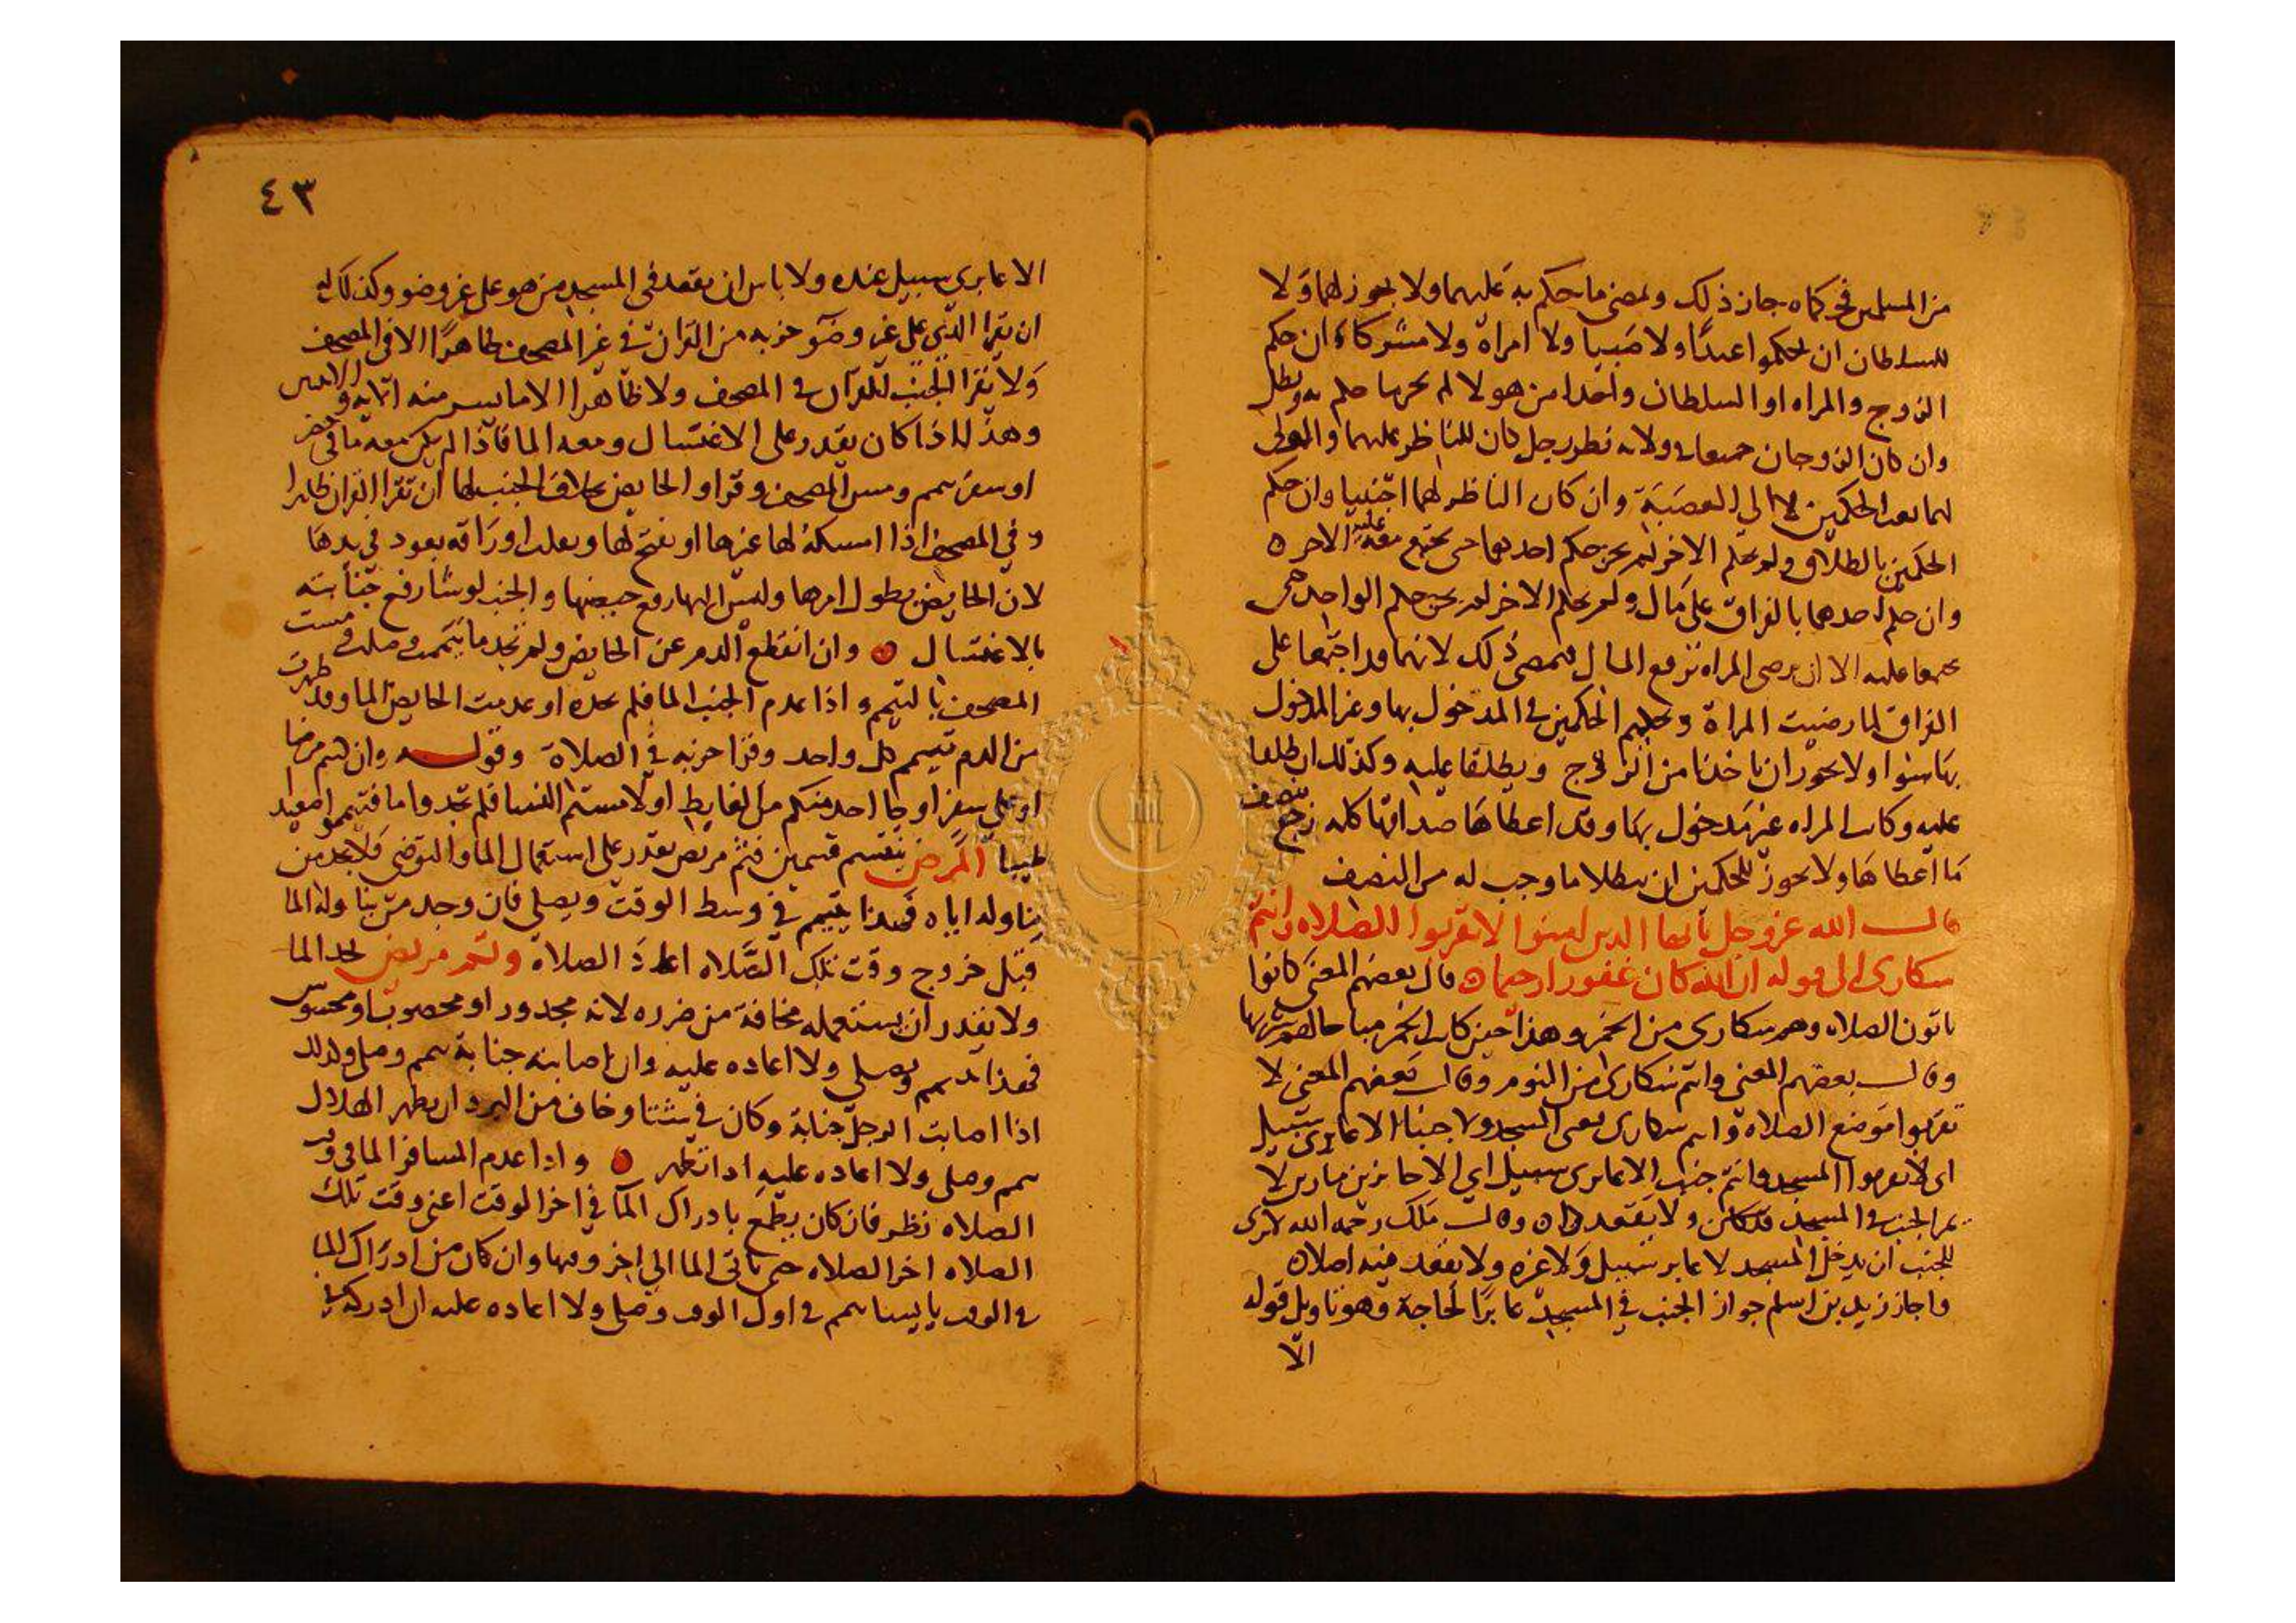 من المسلمين فحكماه جاز ذلك ومضى ما حكم به عليهما ولا يجوز لهما ولا
للسلطان ان يحكموا عبدا ولا صبيا ولا امراة ولا مشركا فان حكم
الزوج والمراه او السلطان واحدا من هولا لم يجز ما حكم به وبطل
وان كان الزوجان جميعا في ولايه نظر رجل كان للناظر عليهما والمولى
لهما بعث الحكمين لا الى العصبة وان كان الناظر لهما اجنبيا وان حكم
الحكمين بالطلاق ولم يحكم الاخر لم يجز حكم احدهما حتى يجتمع معه عليه الاخر
وان حكم احدهما بالفراق على مال ولم يحكم الاخر لم يجز حكم الواحد حتى
يجتمعا عليه الا ان ترضى المراه بدفع المال فيمضى ذلك لانهما قد اجتمعا على
الفراق لما رضيت المراة وتحكيم الحكمين في المدخول بها وغير المدخول
بها سوا ولا يجوز ان ياخذا من الزوج ويطلقا عليه وكذلك ان طلقا
عليه وكانت المراه غير مدخول بها وقد اعطاها صداقها كله رجع بنصف
ما اعطاها ولا يجوز للحكمين ان يبطلا ما وجب له من النصف
قال الله عز وجل يا يها الذين امنوا لا تقربوا الصلاه وانتم
سكارى الى قوله ان الله كان غفورا رحيما قال بعضهم المعنى كانوا
ياتون الصلاه وهم سكارى من الخمر وهذا حين كانت الخمر مباحا لهم شربها
وقال بعضهم المعنى وانتم سكارى من النوم وقال بعضهم المعنى لا
تقربوا موضع الصلاة وانتم سكارى يعنى المسجد ولا جنبا الا عابرى سبيل
اى لا تقربوا المسجد وانتم جنب الا عابرى سبيل اي الا جايزين مارين لا
يمر الجنب في المسجد ولا يقعد وقال ملك رحمه الله لا ارى
للجنب ان يدخل المسجد لا عابر سبيل ولا غيره ولا يقعد فيه اصلا
واجاز زيد بن اسلم جواز الجنب في المسجد عابرا لحاجة وهو تاويل قوله
الا
٤٣
الا عابرى سبيل عنده ولا باس ان يقعد فى المسجد من هو على غير وضو وكذلك له
ان يقرا الذى على غير وضو حزبه من القران في غير المصحف ظاهرا الا فى المصحف
ولا يقرا الجنب القرآن في المصحف ولا ظاهرا الا ما يسر منه الايه والايتين
وهذا اذا كان يقدر على الاغتسال ومعه الما فاذا لم يكن معه ما في حضر
او سفر تيمم ومس المصحف وقرا والحايض بخلاف الجنب لها ان تقرا القران ظاهرا
وفي المصحف اذا امسكه لها غيرها او يفتح لها ويقلب اوراقه بعود في يدها
لان الحايض يطول امرها وليس اليها رفع حيضها والجنب لو شا رفع جنابته
بالاغتسال وان انقطع الدم عن الحايض ولم تجد ما تيممت وصلت ومست
المصحف بالتيمم واذا عدم الجنب الما فلم يجده او عدمت الحايض الما وقد طهرت
من الدم تيمم كل واحد وقرا حزبه في الصلاة وقوله وان كنتم مرضا
او على سفر او جا احد منكم من الغايط او لامستم النسا فلم تجدوا ما فتيمموا صعيدا
طيبا المرض ينقسم قسمين فثم مريض يقدر على استعمال الما والتوضى فلا يجد من
يناوله اياه فهذا يتيمم في وسط الوقت ويصلي فان وجد من يناوله الما
قبل خروج وقت تلك الصلاه اعاد الصلاة وثم مريض يجد الما
ولا يقدر ان يستعمله مخافة من ضرره لانه مجدور او محصوب او محسوس
فهذا تيمم ويصلي ولا اعاده عليه وان اصابته جنابة تيمم وصلى وكذلك
اذا اصابت الرجل جنابة وكان في شتا وخاف من البرد ان يطهر الهلاك
تيمم وصلى ولا اعاده عليه اذا تطهر واذا عدم المسافر الما في وقت
الصلاه نظر فان كان يطمع بادراك الما في اخر الوقت اعنى وقت تلك
الصلاه اخر الصلاه حتى ياتى الما الي اخر وقتها وان كان من ادراك الما
في الوقت يايسا تيمم في اول الوقت وصلى ولا اعاده عليه ان ادركه في